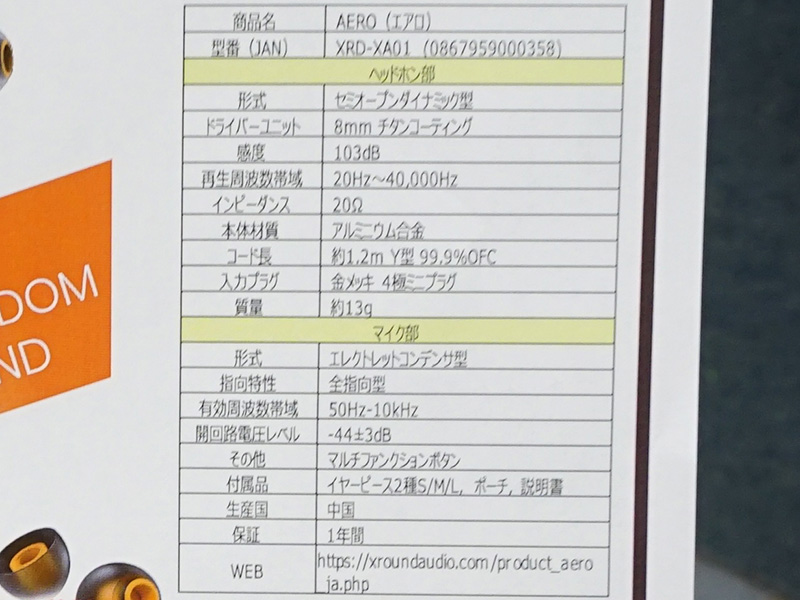 商品名 AERO（エアロ）
型番（JAN） XRD-XA01（0867959000358）
ヘッドホン部
形式 セミオープンダイナミック型
ドライバーユニット 8mm チタンコーティング
感度 103dB
再生周波数帯域 20Hz～40,000Hz
インピーダンス 20Ω
本体材質 アルミニウム合金
コード長 約1.2m Y型 99.9%OFC
入力プラグ 金メッキ 4極ミニプラグ
質量 約13g
マイク部
形式 エレクトレットコンデンサ型
指向特性 全指向型
有効周波数帯域 50Hz-10kHz
開回路電圧レベル -44±3dB
その他 マルチファンクションボタン
付属品 イヤーピース2種S/M/L, ポーチ, 説明書
生産国 中国
保証 1年間
WEB https://xroundaudio.com/product_aero
_ja.php
DOM
ND